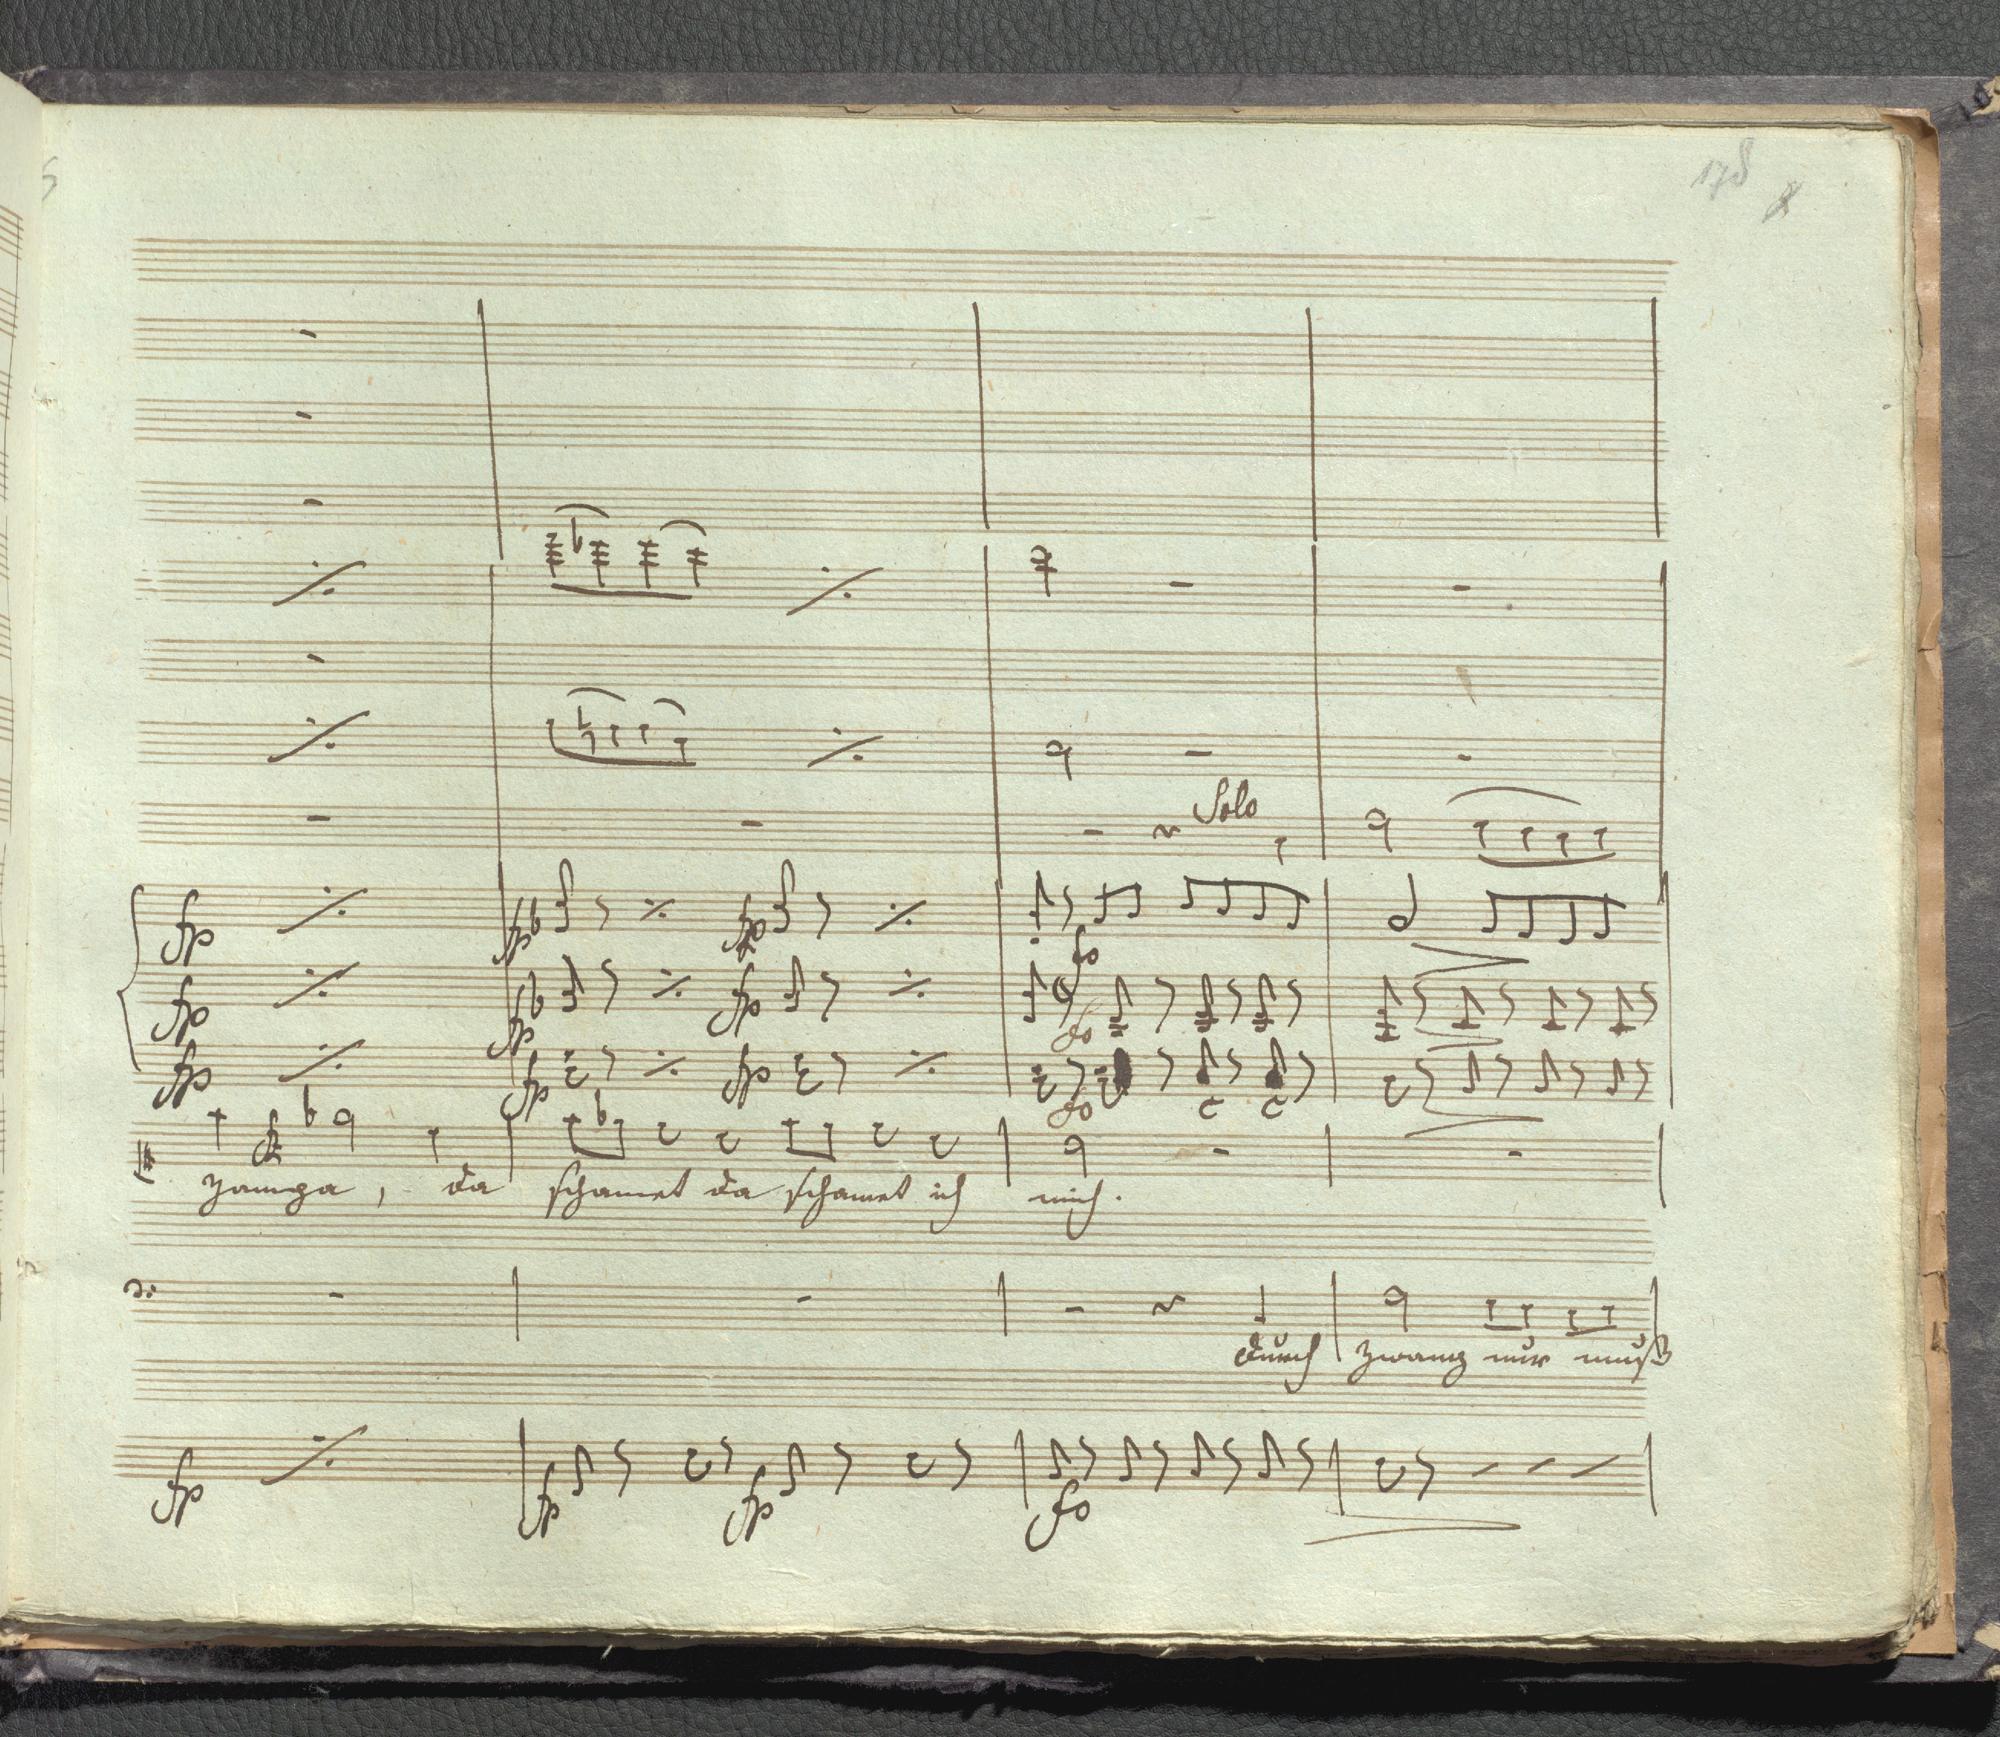 178
Solo
fp fp fp fo
fp fp fp fo
fp fp fp fo
da schamet da schamet ich mich.
durch zwang nur muß
fp fp fp fo